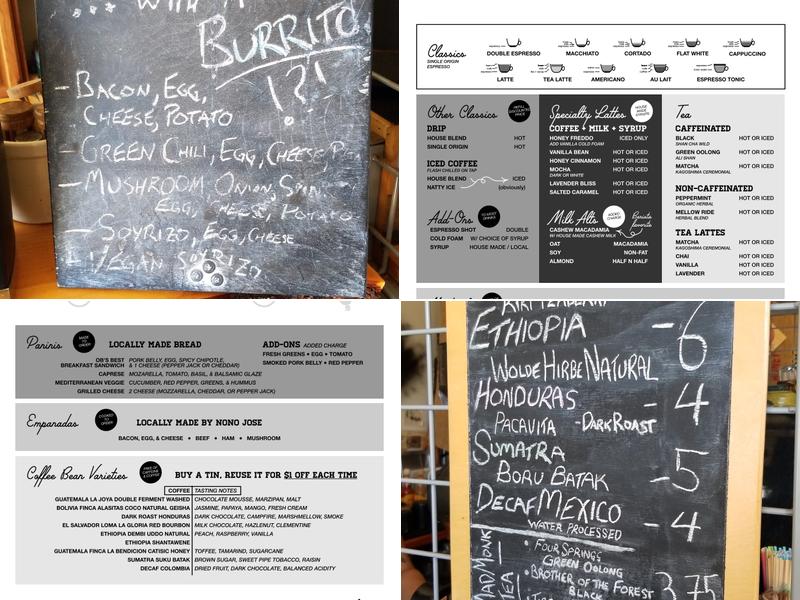 ... WITH A
BURRITO
!?!
- BACON, EGG,
CHEESE, POTATO
- GREEN CHILI, EGG, CHEESE, Po
- MUSHROOM, ONION, SPIN
EGG, CHEESE, POTATO
- SOYRIZO, EGG, CHEESE
- VEGAN SOYRIZO
Classics
SINGLE ORIGIN
ESPRESSO
DOUBLE ESPRESSO MACCHIATO CORTADO FLAT WHITE CAPPUCCINO
LATTE TEA LATTE AMERICANO AU LAIT ESPRESSO TONIC
Other Classics
REFILL
DISCOUNTED
PRICE
DRIP
HOUSE BLEND HOT
SINGLE ORIGIN HOT
ICED COFFEE
FLASH CHILLED ON TAP
HOUSE BLEND ICED
NATTY ICE (obviously)
Add-Ons
TO MOST
DRINKS
ESPRESSO SHOT DOUBLE
COLD FOAM W/ CHOICE OF SYRUP
SYRUP HOUSE MADE / LOCAL
Specialty Lattes
HOUSE
MADE
SYRUPS
COFFEE + MILK + SYRUP
HONEY FREDDO ICED ONLY
ADD VANILLA COLD FOAM
VANILLA BEAN HOT OR ICED
HONEY CINNAMON HOT OR ICED
MOCHA HOT OR ICED
DARK OR WHITE
LAVENDER BLISS HOT OR ICED
SALTED CARAMEL HOT OR ICED
Milk Alts
ADDED
CHARGE
Barista
favorite
CASHEW MACADAMIA
W/ HOUSE MADE CASHEW MILK
OAT MACADAMIA
SOY NON-FAT
ALMOND HALF N HALF
Tea
CAFFEINATED
BLACK HOT OR ICED
SHAN CHA WILD
GREEN OOLONG HOT OR ICED
ALI SHAN
MATCHA HOT OR ICED
KAGOSHIMA CEREMONIAL
NON-CAFFEINATED
PEPPERMINT HOT OR ICED
ORGANIC HERBAL
MELLOW RIDE HOT OR ICED
HERBAL BLEND
TEA LATTES
MATCHA HOT OR ICED
KAGOSHIMA CEREMONIAL
CHAI HOT OR ICED
VANILLA HOT OR ICED
LAVENDER HOT OR ICED
Paninis
MADE
TO
ORDER
LOCALLY MADE BREAD
OB'S BEST PORK BELLY, EGG, SPICY CHIPOTLE,
BREAKFAST SANDWICH & 1 CHEESE (PEPPER JACK OR CHEDDAR)
CAPRESE MOZARELLA, TOMATO, BASIL, & BALSAMIC GLAZE
MEDITERRANEAN VEGGIE CUCUMBER, RED PEPPER, GREENS, & HUMMUS
GRILLED CHEESE 2 CHEESE (MOZZARELLA, CHEDDAR, OR PEPPER JACK)
ADD-ONS ADDED CHARGE
FRESH GREENS • EGG • TOMATO
SMOKED PORK BELLY • RED PEPPER
Empanadas
COOKED
TO
ORDER
LOCALLY MADE BY NONO JOSE
BACON, EGG, & CHEESE • BEEF • HAM • MUSHROOM
Coffee Bean Varieties
BUY A TIN, REUSE IT FOR $1 OFF EACH TIME
COFFEE TASTING NOTES
GUATEMALA LA JOYA DOUBLE FERMENT WASHED CHOCOLATE MOUSSE, MARZIPAN, MALT
BOLIVIA FINCA ALASITAS COCO NATURAL GEISHA JASMINE, PAPAYA, MANGO, FRESH CREAM
DARK ROAST HONDURAS DARK CHOCOLATE, CAMPFIRE, MARSHMELLOW, SMOKE
EL SALVADOR LOMA LA GLORIA RED BOURBON MILK CHOCOLATE, HAZLENUT, CLEMENTINE
ETHIOPIA DEMBI UDDO NATURAL PEACH, RASPBERRY, VANILLA
ETHIOPIA SHANTAWENE
GUATEMALA FINCA LA BENDICION CATISIC HONEY TOFFEE, TAMARIND, SUGARCANE
SUMATRA SUKU BATAK BROWN SUGAR, SWEET PIPE TOBACCO, RAISIN
DECAF COLOMBIA DRIED FRUIT, DARK CHOCOLATE, BALANCED ACIDITY
ETHIOPIA - 6
WOLDE HIRBE NATURAL
HONDURAS - 4
PACAVITA - DARK ROAST
SUMATRA
BORU BATAK - 5
DECAF MEXICO - 4
WATER PROCESSED
MAD MONK
TEA
- FOUR SPRINGS
GREEN OOLONG
- BROTHER OF THE FOREST
BLACK 3.75